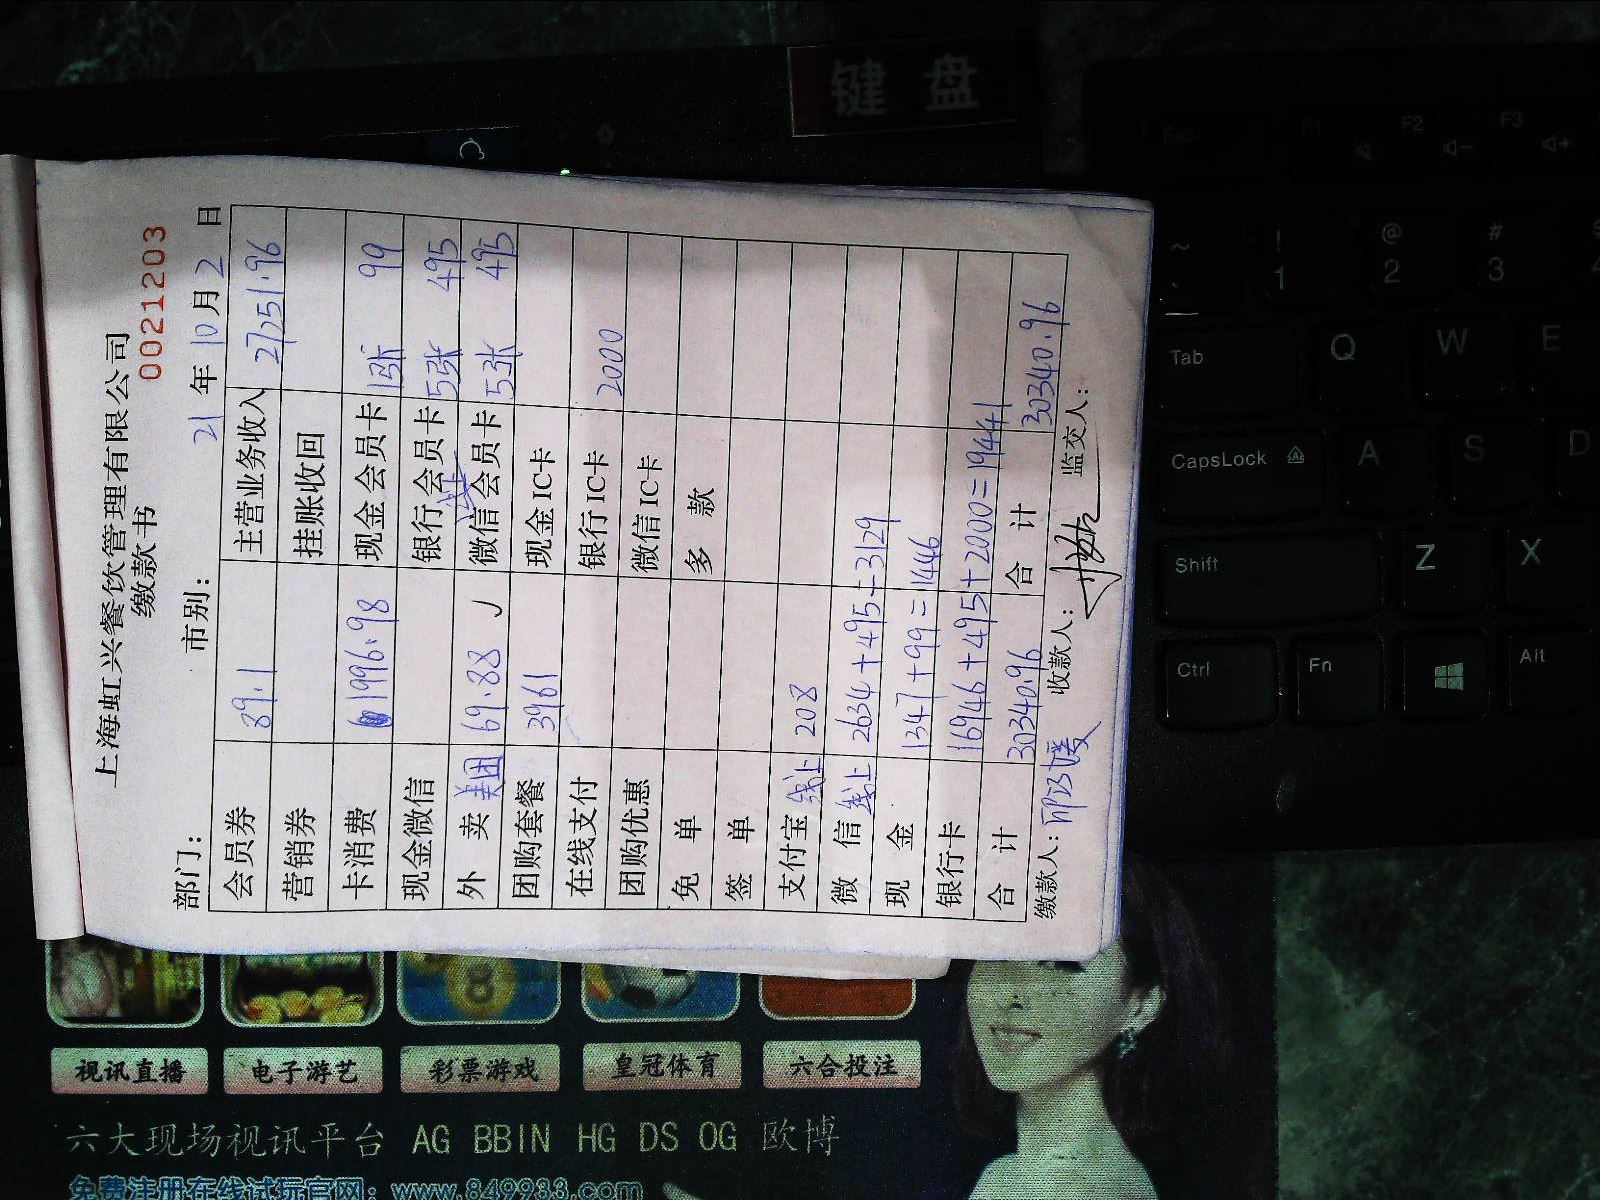 键 盘
上海虹兴餐饮管理有限公司
缴款书 0021203
部门： 市别： 21 年 10 月 2 日
会员券 89.1 主营业务收入 27251.96
营销券 挂账收回
卡消费 1996.98 现金会员卡 1张 99
现金微信 银行会员卡 5张 495
外 卖 美团 69.88 ✓ 微信会员卡 5张 495
团购套餐 3961 现金IC卡
在线支付 银行IC卡 2000
团购优惠 微信IC卡
免 单 多 款
签 单
支付宝 线上 208
微 信 线上 2634+495=3129
现 金 1347+99=1446
银行卡 16946+495+2000=19441
合 计 30340.96 合 计 30340.96
缴款人： 收款人： 监交人：
视讯直播 电子游艺 彩票游戏 皇冠体育 六合投注
六大现场视讯平台 AG BBIN HG DS OG 欧博
免费注册在线试玩官网：www.849933.com
Esc F1 F2 F3
~ ! 1 @ 2 # 3
Tab Q W E
CapsLock A S D
Shift Z X
Ctrl Fn Alt